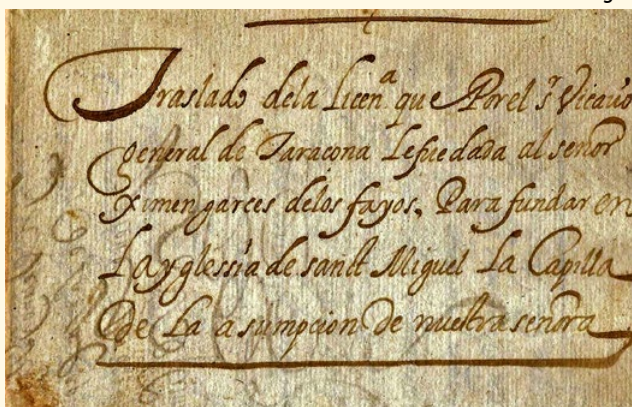 Traslado dela Licenª que Porel sʳ Vicario
general de Taraçona Lefue dada al señor
Ximen garces delos fayos, Para fundar en
La yglessia de sanct Miguel La Capilla
De La asumpcion De nuestra señora